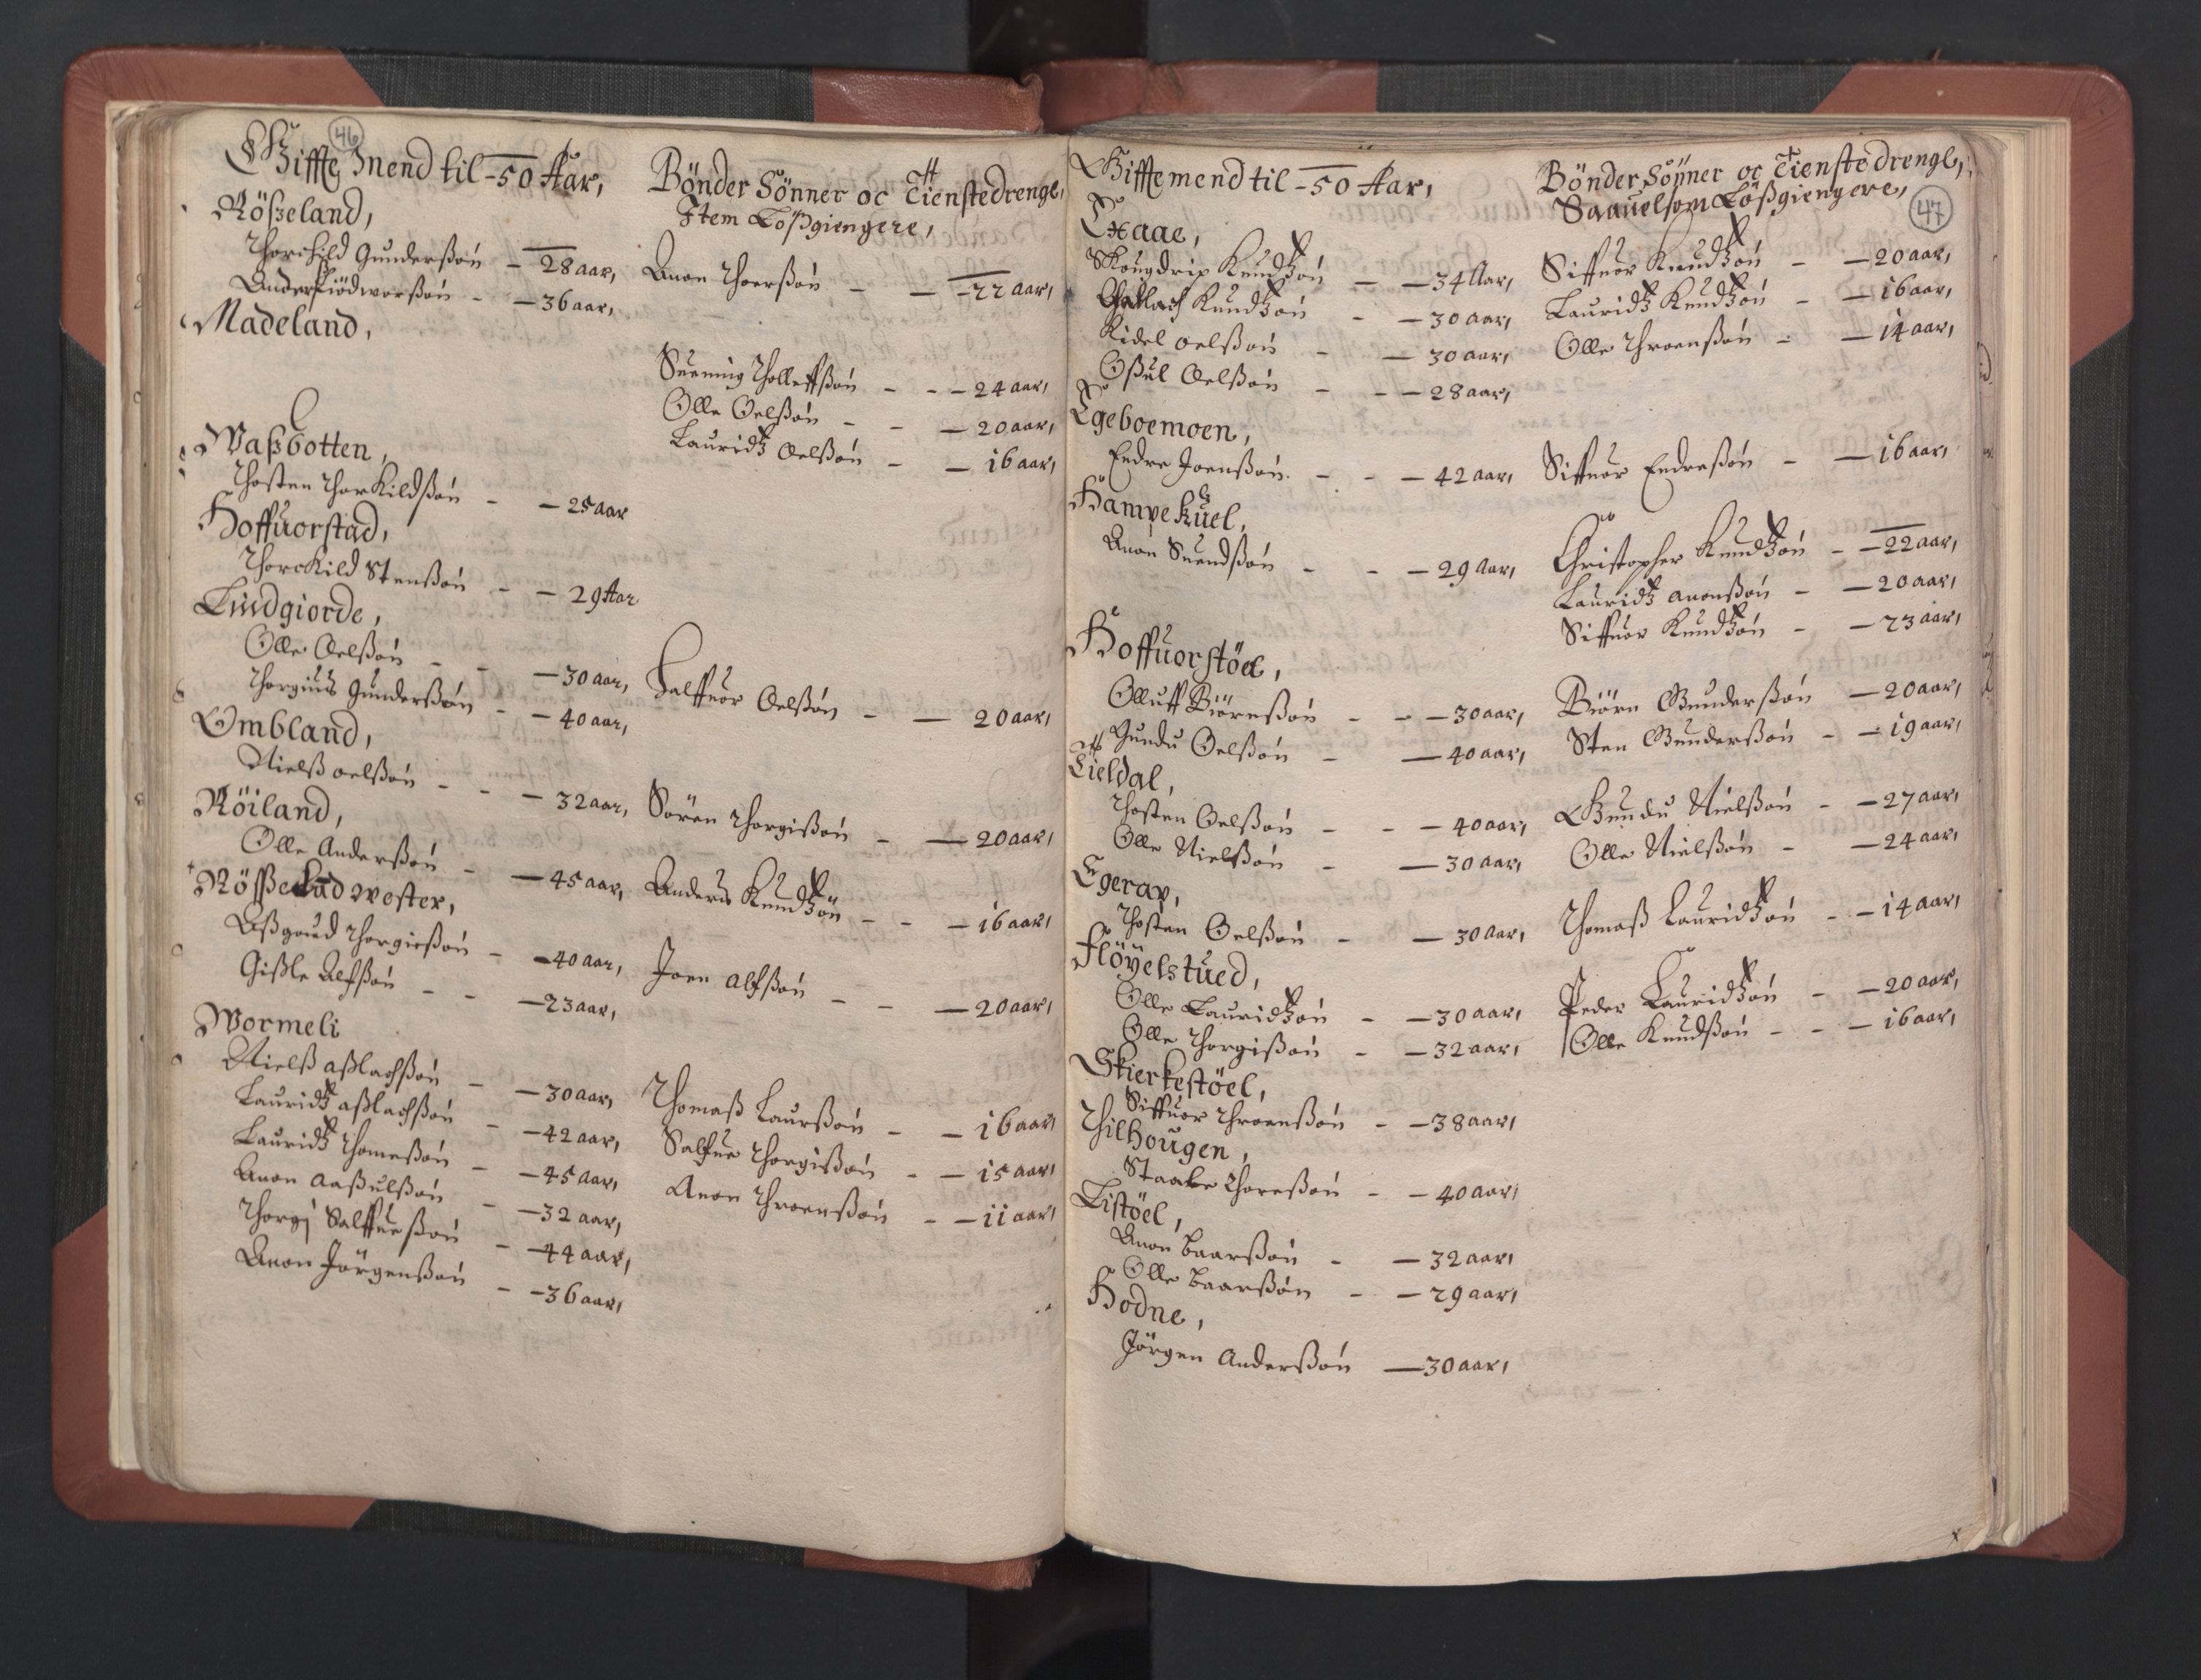 46
Giffte Mend til - 50 Aar,
Rößeland,
Thorchild Gunderßøn - 28 aar,
Anders Siödworßøn - - 36 aar,
Madeland,
Waßbotten,
Thosten Thorkildßøn - - 25 aar
Hoffuorstad,
Thorckild Stenßøn - - 29 Aar
Lindgiorde,
Olle Oelßøn - - - 30 aar,
Thorgius Gunderßøn - - 40 aar,
Ombland,
Nielß oelßøn - - - 32 aar,
Röiland,
Olle Anderßøn - - 45 aar,
Rößeland wester,
Aßgoud Thorgießøn - - 40 aar,
Gißle Alfßøn - - - 23 aar,
Wormeli
Nielß aßlachßøn - - 30 aar,
Lauridtz aßlachßøn - - 42 aar,
Lauridtz Thomeßøn - - 45 aar,
Anon Aaßulßøn - - 32 aar,
Thorgj Salffueßøn - - 44 aar,
Anon Jörgenßøn - - 36 aar,
Bönder Sönner oc Tienstedrenge,
Item Lößgiengere,
Anon Thoerßøn - - - 22 aar,
Suenning Tholleffßøn - - - 24 aar,
Olle Oelßøn - - - 20 aar,
Lauridtz Oelßøn - - 16 aar,
Salffuor Oelßøn - - 20 aar,
Sören Thorgißøn - - 20 aar,
Anders Knudtzön - - - 16 aar,
Joen Alfßøn - - - 20 aar,
Thomaß Laurßøn - - 16 aar,
Salfue Thorgißøn - - 15 aar,
Anon Throenßøn - - 11 aar,
Giffte mend til - 50 Aar,
Exaae,
Skougdrix Knudtzøn - - 34 Aar,
Knudtzøn - - 30 aar,
Kidel oelßøn - - 30 aar,
Oßul Oelßøn - - - 28 aar,
Egeboemoen,
Endre Joenßøn - - - 42 aar,
Hampekuel,
Anon Suendßøn - - - 29 Aar,
Hoffuorstöel,
Olluff Biörnßøn - - - 30 aar,
Gundu Oelßøn - - 40 aar,
Lieldal,
Thosten Oelßøn - - - 40 aar,
Olle Nielßøn - - 30 aar,
Egerax,
Thosten Oelßøn - - 30 aar,
Flöyelstued,
Olle Lauridtzøn - - 30 aar,
Olle Thorgißøn - - 32 aar,
Skierkestöel,
Siffuor Throenßøn - - 38 aar,
Thilhougen,
Staake Thoreßøn - - 40 aar,
Listöel,
Anon Baarßøn - - 32 aar,
Olle Baarßøn - - 29 aar,
Hodne,
Jörgen Anderßøn - 30 aar,
Bönder Sönner oc Tienstedrenge,
Saauelsom Lößgiengere,
47
Siffuor Knudtzøn - - 20 aar,
Lauridtz Knudtzøn - - 16 aar,
Olle Throenßøn - - 14 aar,
Siffuor Endreßøn - - 16 aar,
Christopher Knudtzøn - - 22 aar,
Lauridtz anonßøn - - 20 aar,
Siffuor Knudtzøn - - 23 aar,
Biörn Gunderßøn - 20 aar,
Sten Gunderßøn - - 19 aar,
Gundu Nielßøn - - 27 aar,
Olle Nielßøn - - 24 aar,
Thomaß Lauridtzøn - - 14 aar,
Peder Lauridtzøn - - 20 aar,
Olle Knudßøn - - - 16 aar,